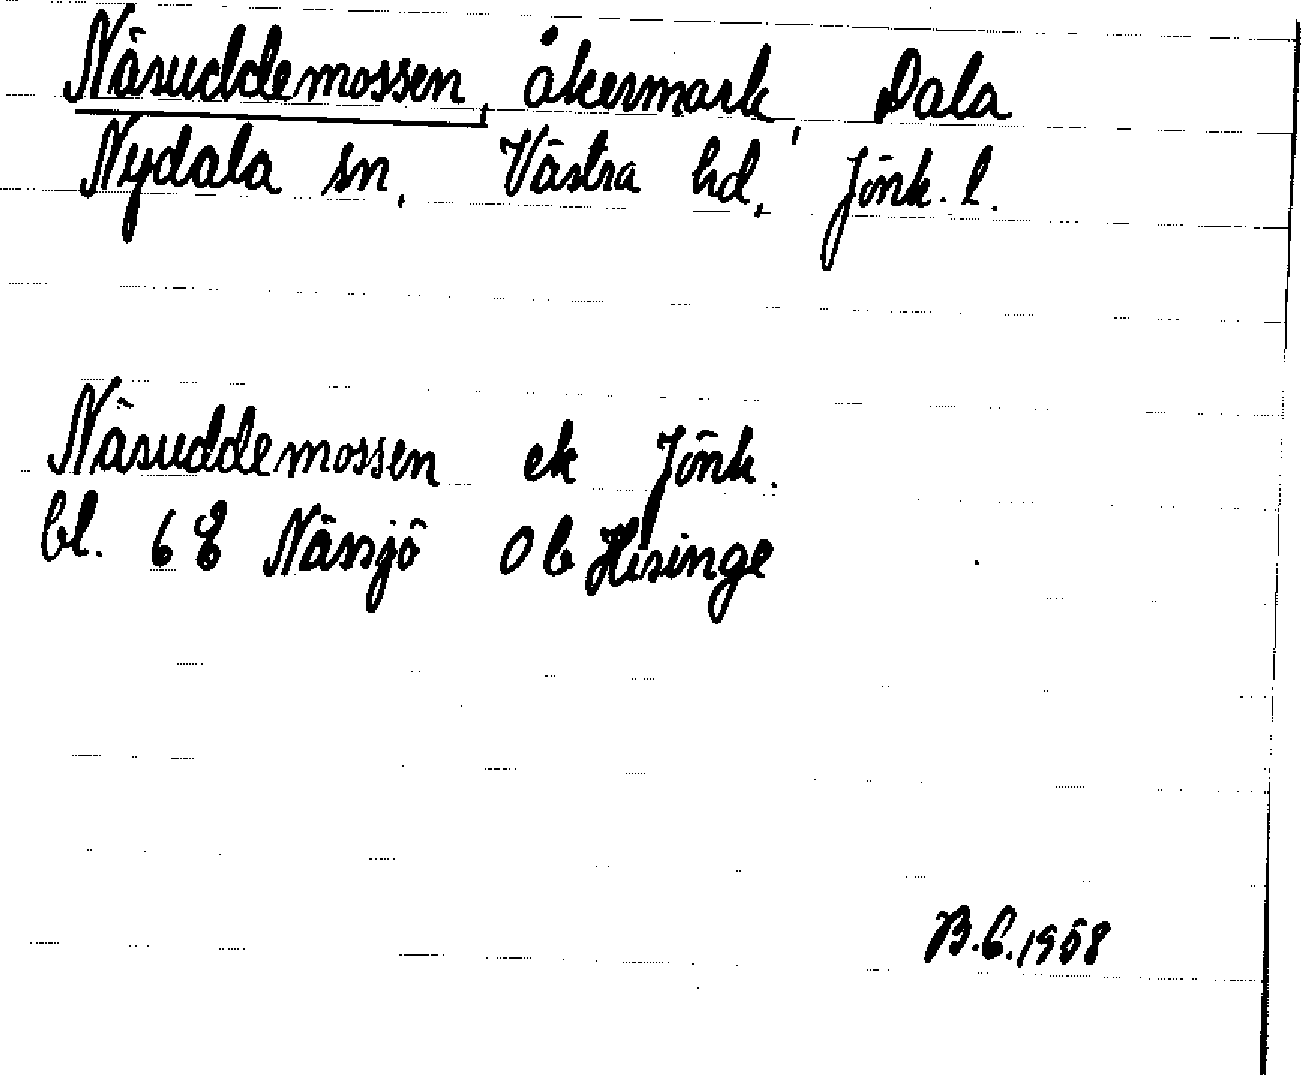 Näsuddemossen, åkermark, Dala
Nydala sn, Västra hd, Jönk. l.
Näsuddemossen ek Jönk.
bl. 6 E Nässjö 0 b Hisinge
B.C. 1968